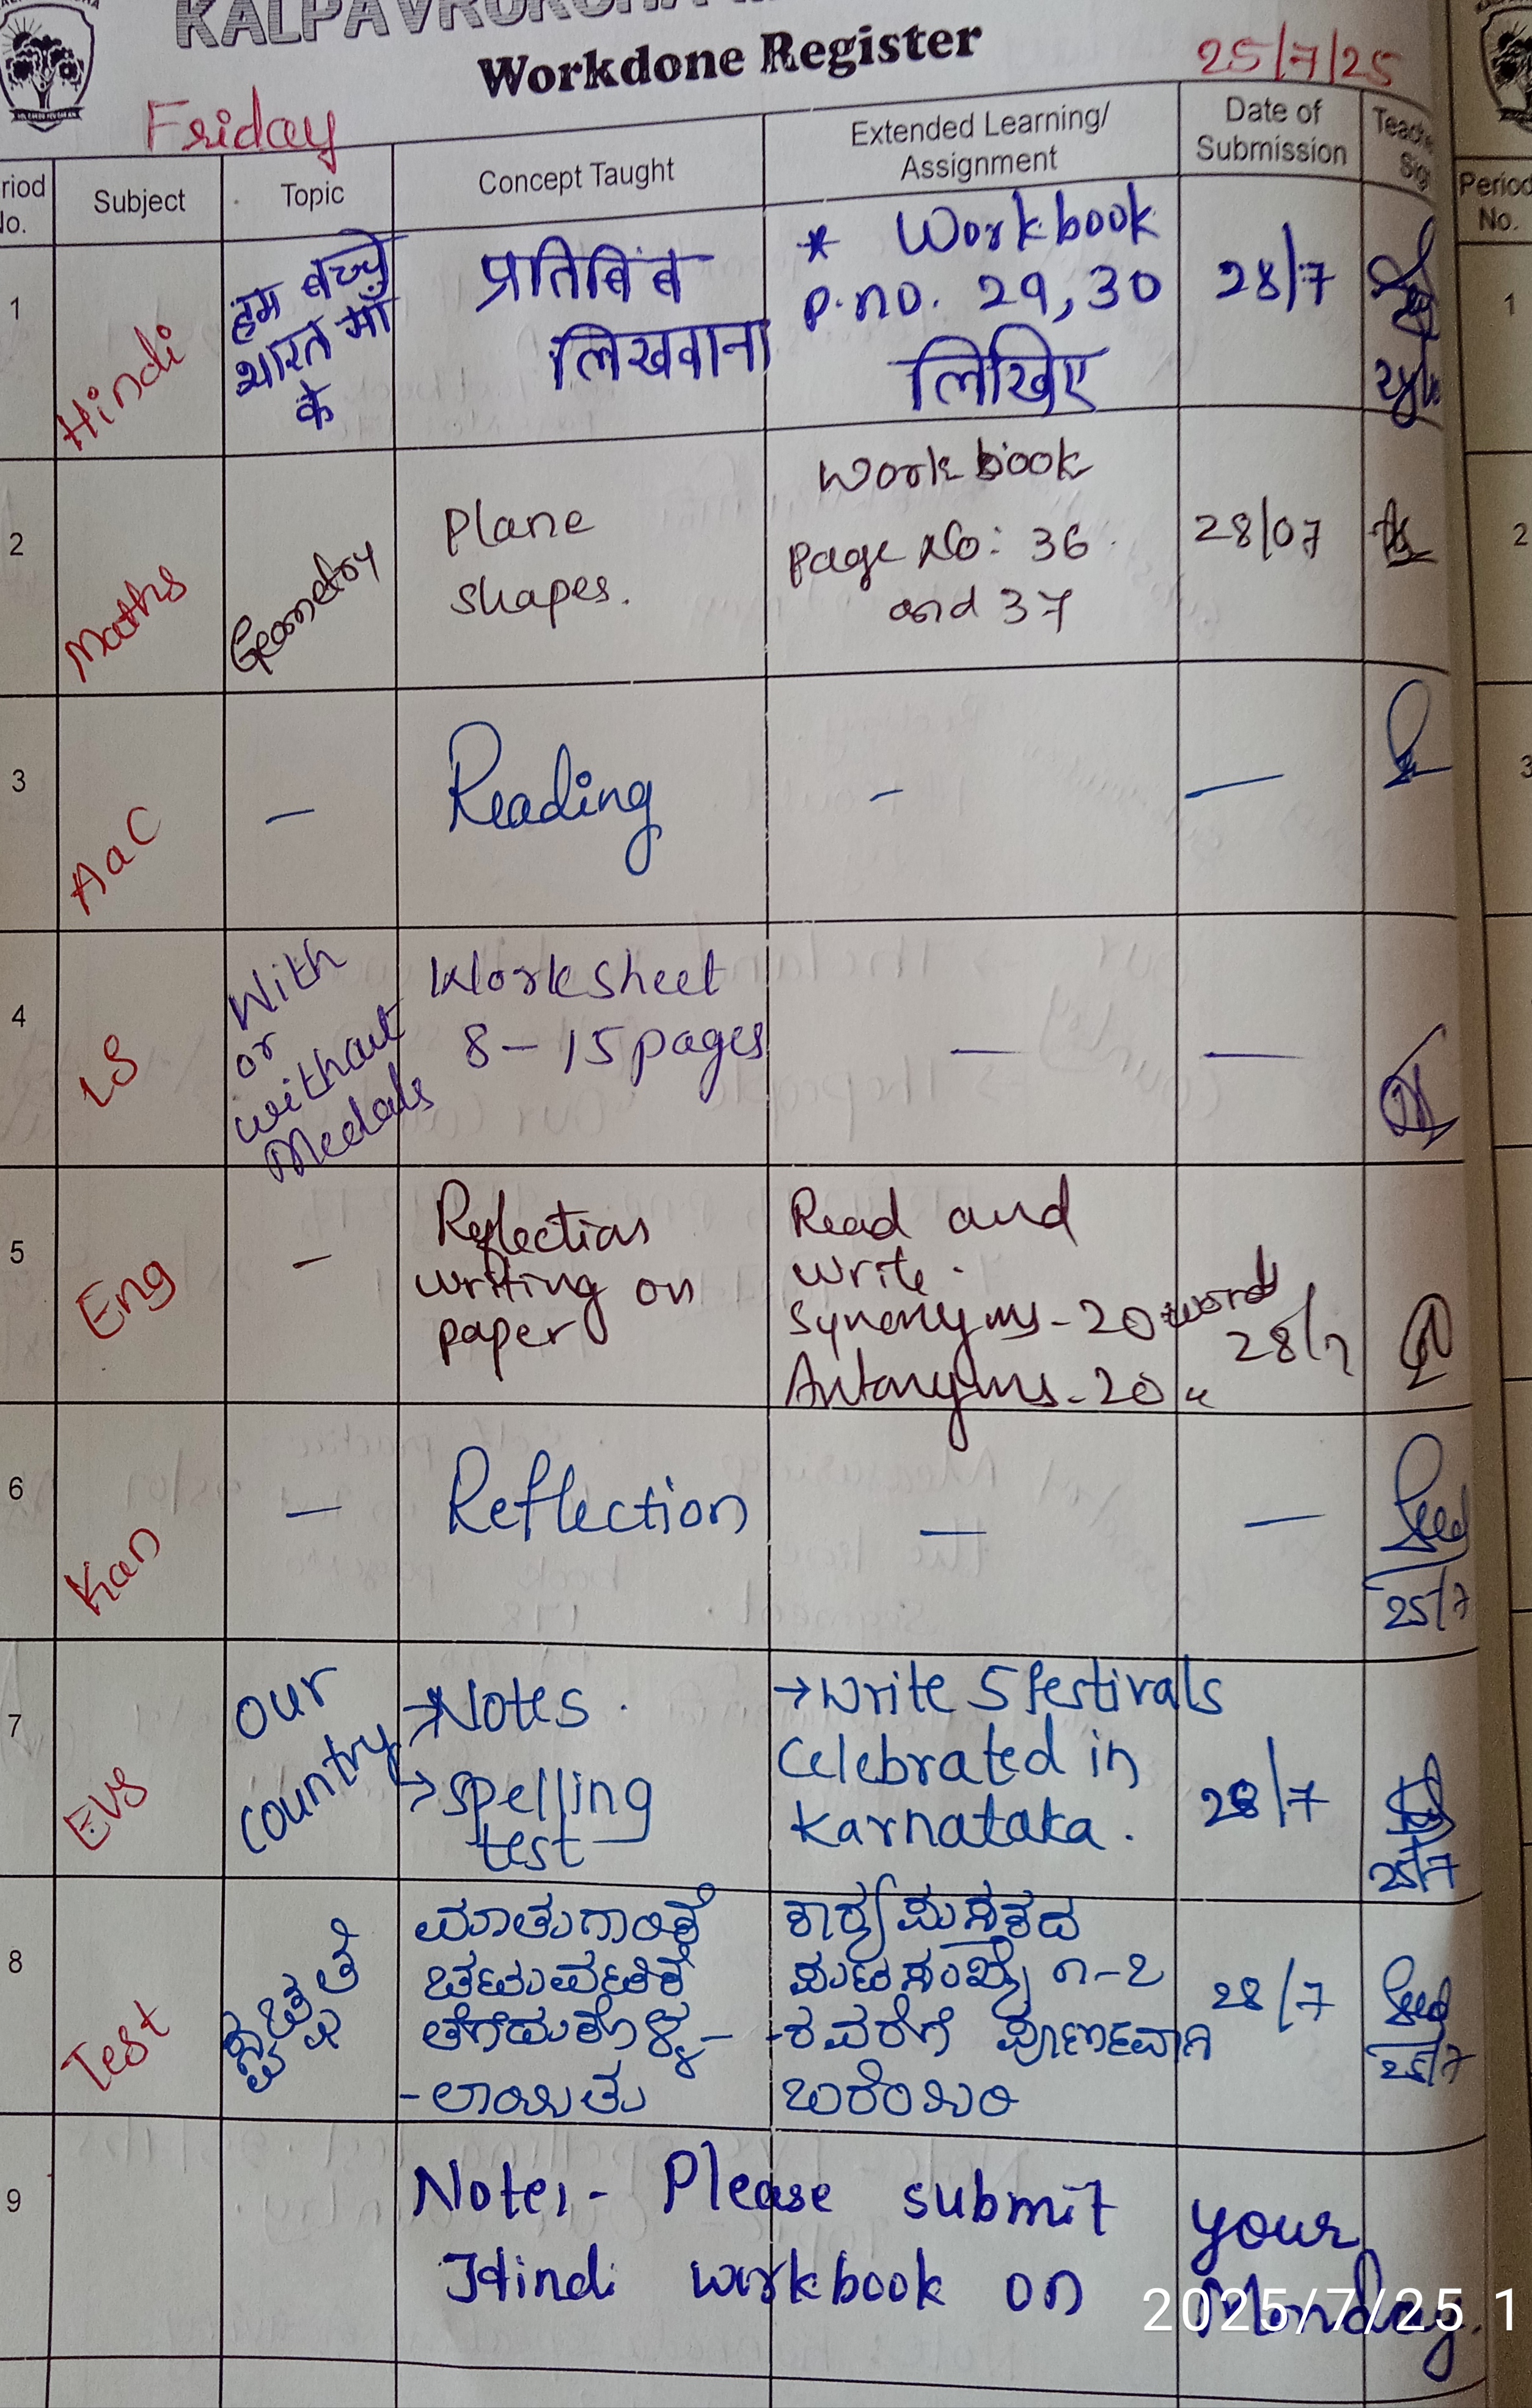 KALPAVRUKSHA
Workdone Register
25/7/25
Friday
Period No.
Subject
Topic
Concept Taught
Extended Learning/
Assignment
Date of
Submission
1
Hindi
हम बच्चे
भारत माँ
के
प्रतिबिंब
लिखवाना
* Workbook
p.no. 29, 30
लिखिए
28/7
2
Maths
Geometry
Plane
shapes.
Workbook
page No: 36
and 37
28/07
3
AaC
—
Reading
—
—
4
LS
With
or
without
Medals
Worksheet
8 - 15 pages
—
—
5
Eng
—
Reflection
writing on
paper
Read and
write.
Synonyms - 20 words
Antonyms - 20 "
28/7
6
Kan
—
Reflection
—
—
25/7
7
EVS
our
country
→ Notes.
→ Spelling
test
→ Write 5 festivals
Celebrated in
Karnataka.
28/7
25/7
8
Test
ಸ್ವಚ್ಛತೆ
ಮಾತುಗಾರಿಕೆ
ಚಟುವಟಿಕೆ
ತೆಗೆದುಕೊಳ್ಳ-
-ಲಾಯಿತು
ಕಾರ್ಯಪುಸ್ತಕದ
ಪುಟ ಸಂಖ್ಯೆ ೧-೭
ರವರೆಗೆ ಪೂರ್ಣವಾಗಿ
ಬರೆಯಿರಿ
28/7
25/7
9
Note:- Please submit your
Hindi workbook on Monday.
2025/7/25 1
Period
No.
1
2
3